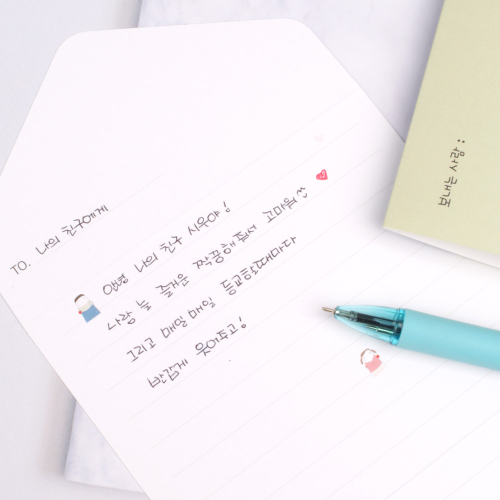 TO. 나의 친구에게
안녕 나의 친구 시우야!
나랑 늘 즐거운 짝꿍해줘서 고마워^^
그리고 매일매일 등교하도때마다
반갑게 웃어주고!
보내는 사람 :